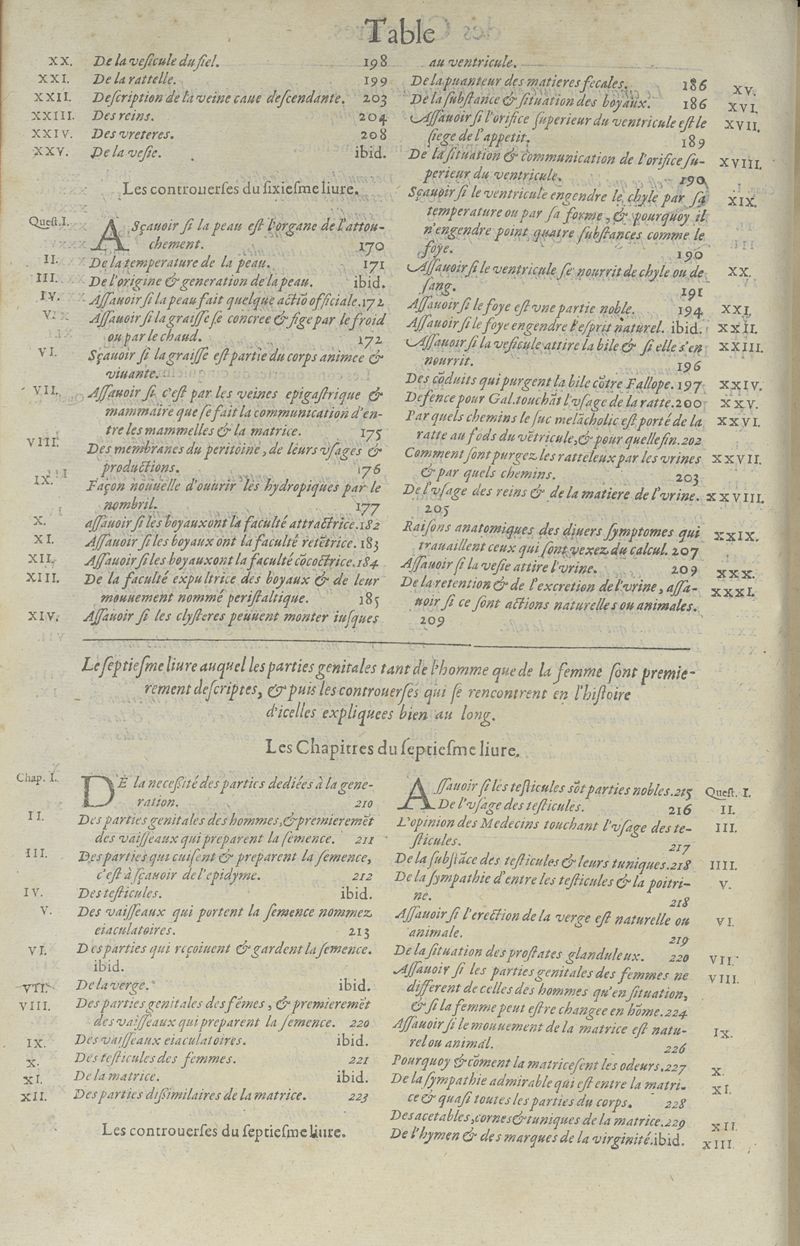 Table
XX. De la veſicule du fiel. 198
XXI. De la rattelle. 199
XXII. Deſcription de la veine caue deſcendante. 203
XXIII. Des reins. 204
XXIV. Des vreteres. 208
XXV. De la veſie. ibid.
Les controuerſes du ſixieſme liure.
Queſt. I. ASçauoir ſi la peau eſt l'organe de l'attou-
chement. 170
II. De la temperature de la peau. 171
III. De l'origine & generation de la peau. ibid.
IV. Aſſauoir ſi la peau fait quelque actiō officiale. 172
V. Aſſauoir ſi la graiſſe ſe concree & fige par le froid
ou par le chaud. 172
VI. Sçauoir ſi la graiſſe eſt partie du corps animee &
viuante.
VII. Aſſauoir ſi c'eſt par les veines epigaſtrique &
mammaire que ſe fait la communication d'en-
tre les mammelles & la matrice. 175
VIII. Des membranes du peritoine, de leurs vſages &
productions. 176
IX. Façon nouuelle d'ouurir les hydropiques par le
nombril. 177
X. aſſauoir ſi les boyaux ont la faculté attractrice. 182
XI. Aſſauoir ſi les boyaux ont la faculté retētrice. 183
XII. Aſſauoir ſi les boyaux ont la faculté cōcoctrice. 184
XIII. De la faculté expultrice des boyaux & de leur
mouuement nommé periſtaltique. 185
XIV. Aſſauoir ſi les clyſteres peuuent monter iuſques
au ventricule.
De la puanteur des matieres fecales. 186 XV.
De la ſubſtance & ſituation des boyaux. 186 XVI.
Aſſauoir ſi l'orifice ſuperieur du ventricule eſt le XVII.
ſiege de l'appetit. 189
De la ſituation & communication de l'orifice ſu- XVIII.
perieur du ventricule. 190
Sçauoir ſi le ventricule engendre le chyle par ſa XIX.
temperature ou par ſa forme, & pourquoy il
n'engendre point quatre ſubſtances comme le
foye. 190
Aſſauoir ſi le ventricule ſe nourrit de chyle ou de XX.
ſang. 191
Aſſauoir ſi le foye eſt vne partie noble. 194 XXI.
Aſſauoir ſi le foye engendre l'eſprit naturel. ibid. XXII.
Aſſauoir ſi la veſicule attire la bile & ſi elle s'en XXIII.
nourrit. 196
Des cōduits qui purgent la bile cōtre Fallope. 197 XXIV.
Defence pour Gal. touchāt l'vſage de la ratte. 200 XXV.
Par quels chemins le ſuc melācholic eſt porté de la XXVI.
ratte au fōds du vētricule, & pour quelle fin. 202
Comment ſont purgez les ratteleux par les vrines XXVII.
& par quels chemins. 203
De l'vſage des reins & de la matiere de l'vrine. XXVIII.
205
Raiſons anatomiques des diuers ſymptomes qui XXIX.
trauaillent ceux qui ſont vexez du calcul. 207
Aſſauoir ſi la veſie attire l'vrine. 209 XXX.
De la retention & de l'excretion de l'vrine, aſſa- XXXI.
uoir ſi ce ſont actions naturelles ou animales.
209
Le ſeptieſme liure auquel les parties genitales tant de l'homme que de la femme ſont premie-
rement deſcriptes, & puis les controuerſes qui ſe rencontrent en l'hiſtoire
d'icelles expliquees bien au long.
Les Chapitres du ſeptieſme liure.
Chap. I. DE la neceſſité des parties dediées à la gene-
ration. 210
II. Des parties genitales des hommes, & premieremēt
des vaiſſeaux qui preparent la ſemence. 211
III. Des parties qui cuiſent & preparent la ſemence,
c'eſt à ſçauoir de l'epidyme. 212
IV. Des teſticules. ibid.
V. Des vaiſſeaux qui portent la ſemence nommez
eiaculatoires. 213
VI. Des parties qui reçoiuent & gardent la ſemence.
ibid.
VII. De la verge. ibid.
VIII. Des parties genitales des fēmes, & premieremēt
des vaiſſeaux qui preparent la ſemence. 220
IX. Des vaiſſeaux eiaculatoires. ibid.
X. Des teſticules des femmes. 221
XI. De la matrice. ibid.
XII. Des parties diſſimilaires de la matrice. 223
Les controuerſes du ſeptieſme liure.
ASſauoir ſi les teſticules sōt parties nobles. 215 Queſt. I.
De l'vſage des teſticules. 216 II.
L'opinion des Medecins touchant l'vſage des te- III.
ſticules. 217
De la ſubſtāce des teſticules & leurs tuniques. 218 IIII.
De la ſympathie d'entre les teſticules & la poitri- V.
ne. 218
Aſſauoir ſi l'erection de la verge eſt naturelle ou VI.
animale. 219
De la ſituation des proſtates glanduleux. 220 VII.
Aſſauoir ſi les parties genitales des femmes ne VIII.
different de celles des hommes qu'en ſituation,
& ſi la femme peut eſtre changee en hōme. 224
Aſſauoir ſi le mouuement de la matrice eſt natu- IX.
rel ou animal. 226
Pourquoy & cōment la matrice ſent les odeurs. 227 X.
De la ſympathie admirable qui eſt entre la matri- XI.
ce & quaſi toutes les parties du corps. 228
Des acetables, cornes & tuniques de la matrice. 229 XII.
De l'hymen & des marques de la virginité. ibid. XIII.